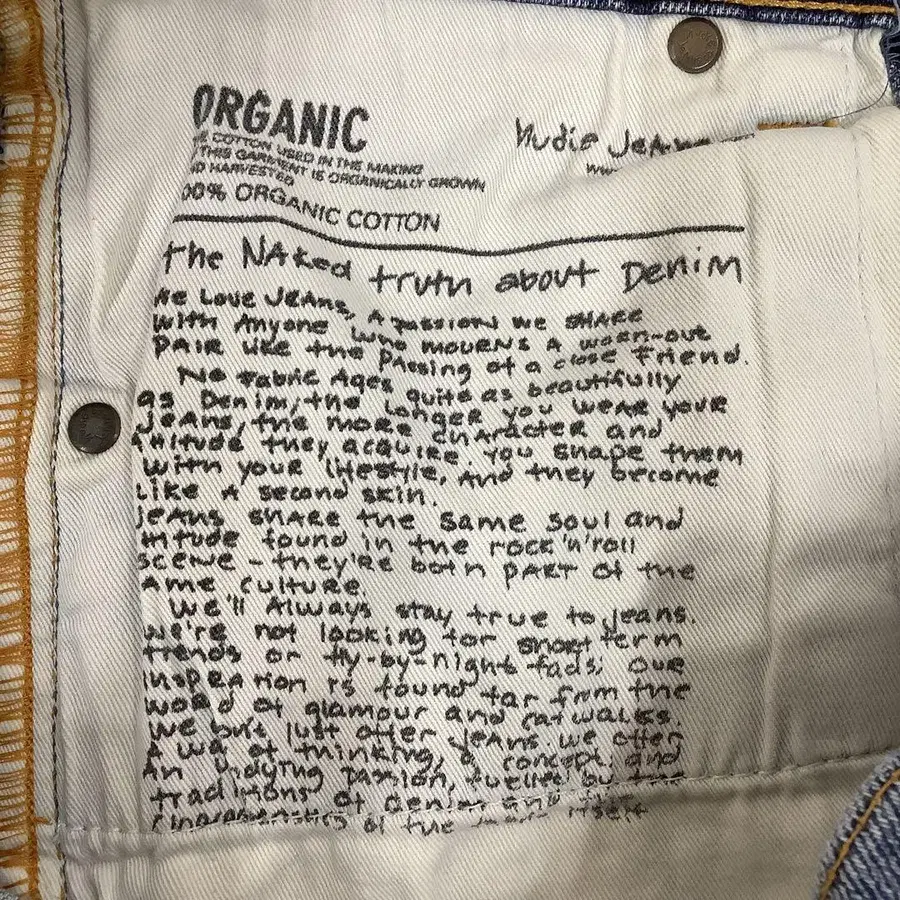 ORGANIC
COTTON USED IN THE MAKING
THIS GARMENT IS ORGANICALLY GROWN
HARVESTED
00% ORGANIC COTTON
Nudie Jeans
ww
the NAked truth about Denim
We Love JEANS, A passion we SHARE
With Anyone who mourns A worn-out
PAIR like the Passing of a close Friend.
No Fabric Ages quite as beautifully
as Denim, the Longer you wear your
Jeans, the more character and
ttitude they acquire. You shape them
With your lifestyle, And they become
Like A second skin.
jeAns share the same soul and
ttitude found in the rock'n'roll
scene - they're both pARt of the
Ame culture.
We'll Always stay true to jeans.
we're not looking for short term
trends or fly-by-night fads; our
inspiration is found far from the
world of glamour and catwalks.
We don't just offer jeans. We offer
A way of thinking, a concept, and
An undying passion, fuelled by the
traditions of denim and the
characteristics of the itself